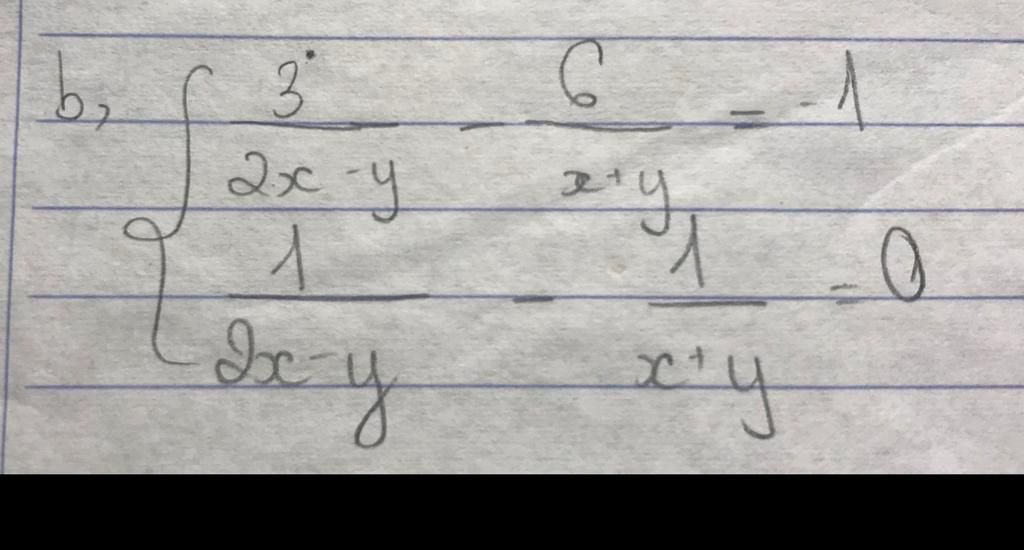 b, { 3/(2x - y) - 6/(x + y) = -1
1/(2x - y) - 1/(x + y) = 0